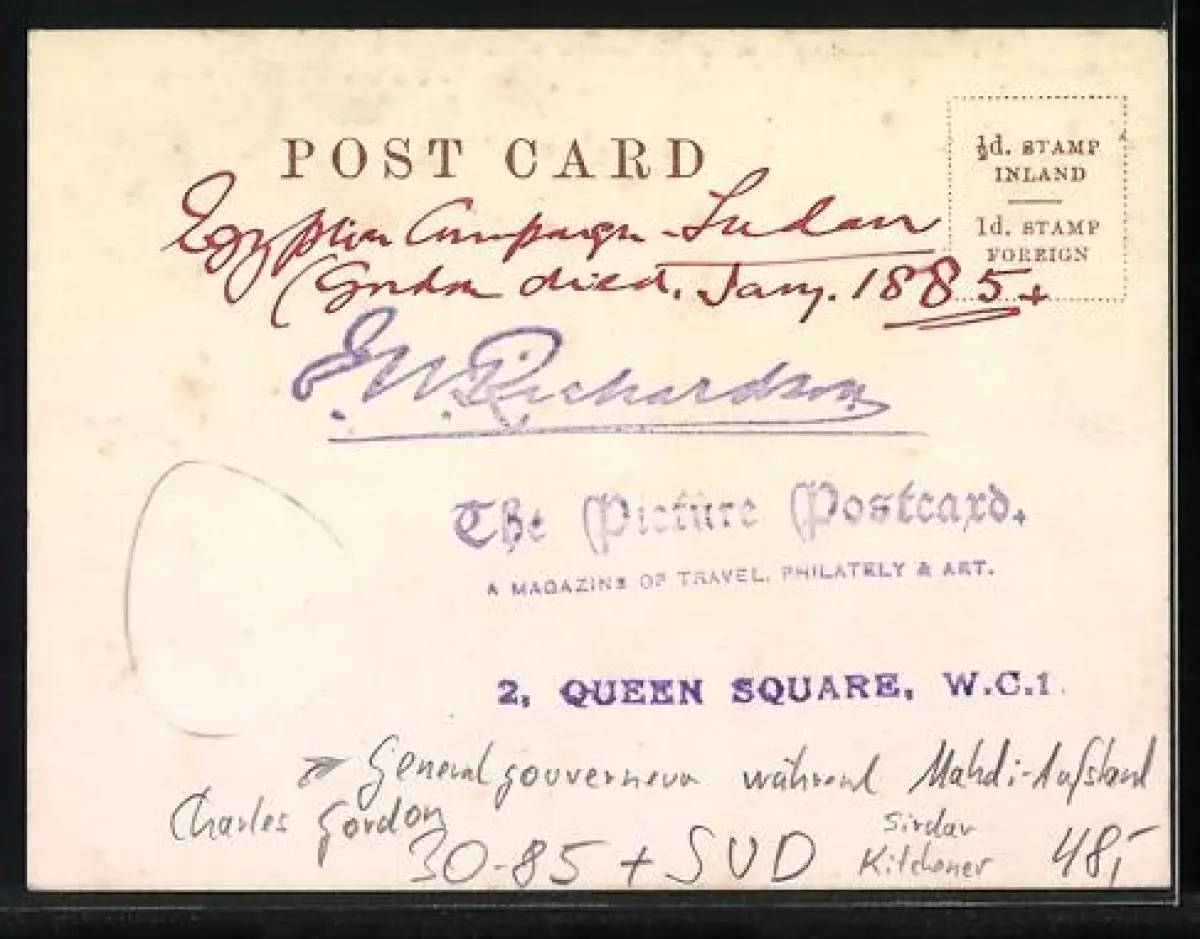 POST CARD
½d. STAMP
INLAND
1d. STAMP
FOREIGN
Egyptian Campaign - Sudan
(Gordon died. Jany. 1885+
E.W. Richardson
The Picture Postcard.
A MAGAZINE OF TRAVEL, PHILATELY & ART.
2, QUEEN SQUARE, W.C.1.
Generalgouverneur während Mahdi-Aufstand
Charles Gordon
30-85 + SUD
Sirdar
Kitchener
48,-